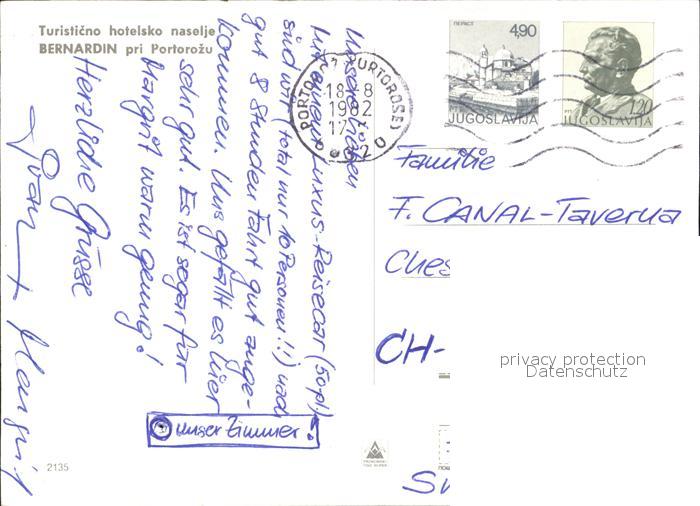 Turistično hotelsko naselje
BERNARDIN pri Portorožu
Unsere lieben
Mit einem Luxus-Reisecar (50pl.)
sind wir (total nur 10 Personen!!) nach
gut 8 Stunden Fahrt gut ange-
kommen. Uns gefällt es hier
sehr gut. Es ist sogar für
Margrit warm genug!
Herzliche Grüsse
Margrit
unser Zimmer!
PORTOROŽ (PORTOROSE)
18-8
1982
17
PERAST
4,90
JUGOSLAVIJA
1,20
JUGOSLAVIJA
Familie
F. CANAL-Taverna
Ches
CH-
privacy protection
Datenschutz
2135